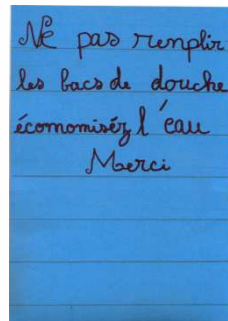 Ne pas remplir
les bacs de douche
écomomiséz l'eau
Merci